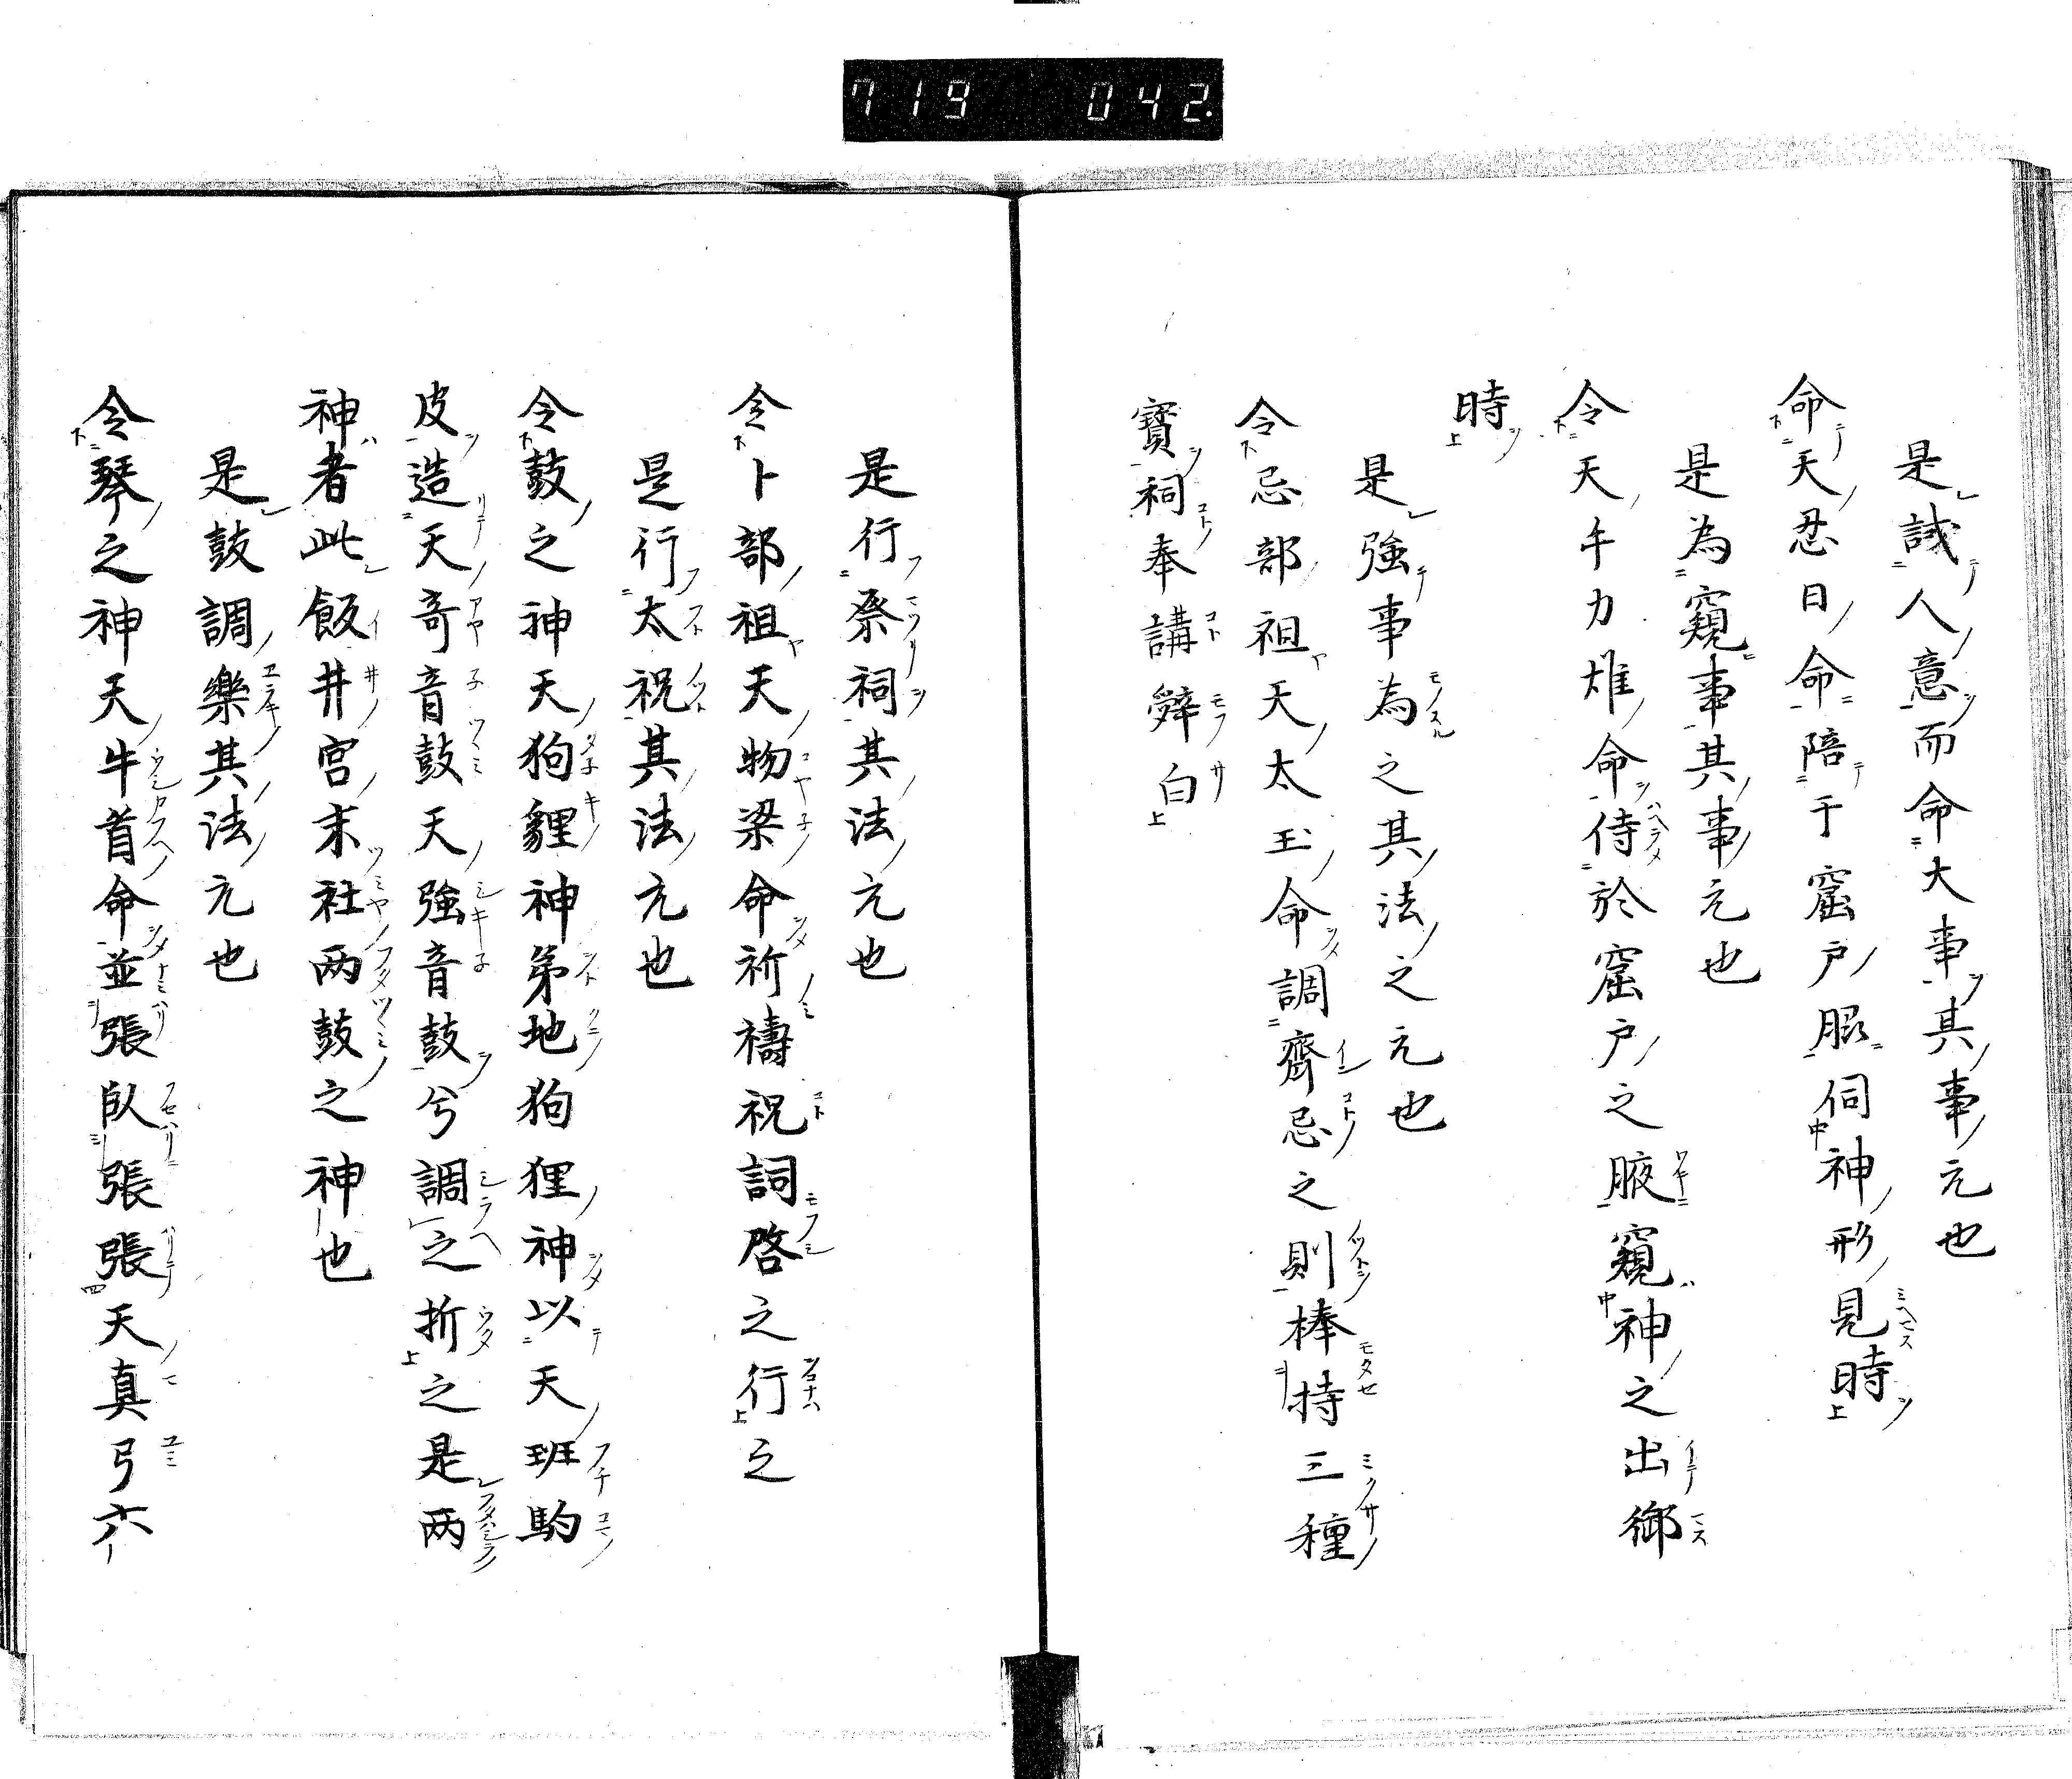 719 042.
是誠人意而命大事其事元也
命天忍日命陪于窟戸服伺神形見時
是為窺事其事元也
令天手力雄命侍於窟戸之腋窺神之出御
時
是強事為之其法之元也
令忌部祖天太玉命調齊忌之則棒持三種
寳祠奉講辭白
是行祭祠其法元也
令卜部祖天物梁命祈禱祝詞啓之行之
是行太祝其法元也
令鼓之神天狗貍神弟地狗狸神以天班駒
皮造天奇音鼓天強音鼓兮調之折之是两
神者此飯井宮末社两鼓之神也
是鼓調樂其法元也
令琴之神天牛首命並張臥張張天真弓六